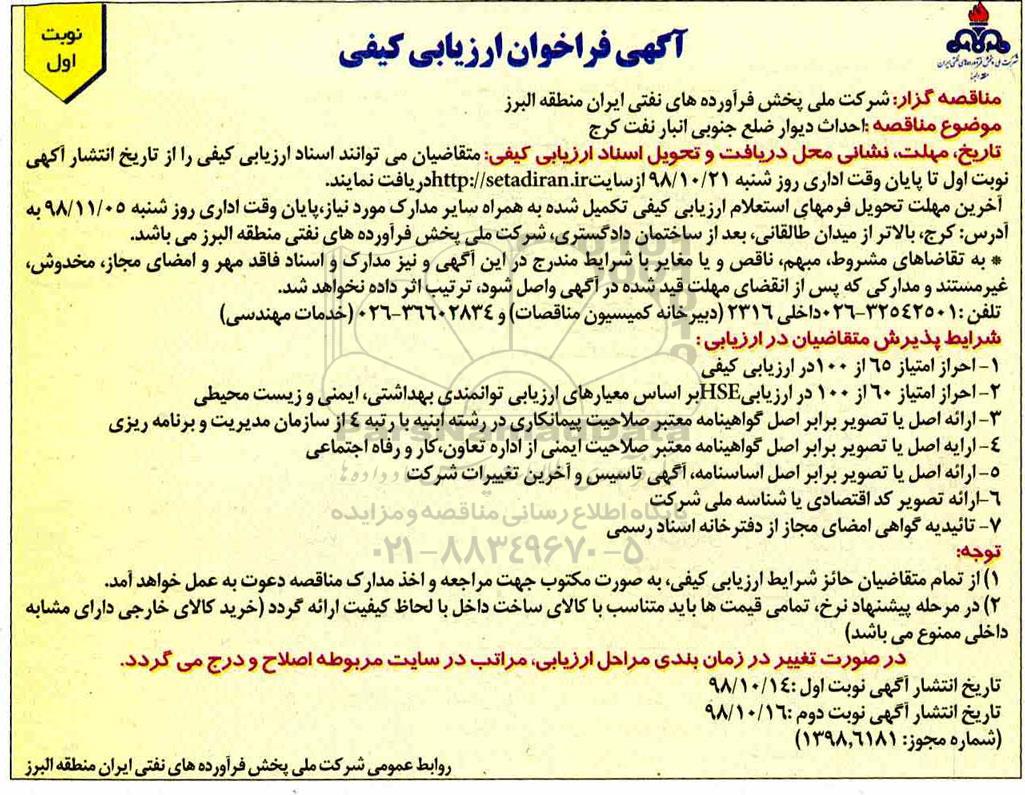 نوبت
اول
آگهی فراخوان ارزیابی کیفی
شرکت ملی پخش فرآورده‌های نفتی ایران
منطقه البرز
مناقصه گزار: شرکت ملی پخش فرآورده های نفتی ایران منطقه البرز
موضوع مناقصه :احداث دیوار ضلع جنوبی انبار نفت کرج
تاریخ، مهلت، نشانی محل دریافت و تحویل اسناد ارزیابی کیفی: متقاضیان می توانند اسناد ارزیابی کیفی را از تاریخ انتشار آگهی
نوبت اول تا پایان وقت اداری روز شنبه ۹۸/۱۰/۲۱ ازسایتhttp://setadiran.irدریافت نمایند.
آخرین مهلت تحویل فرمهای استعلام ارزیابی کیفی تکمیل شده به همراه سایر مدارک مورد نیاز،پایان وقت اداری روز شنبه ۹۸/۱۱/۰۵ به
آدرس: کرج، بالاتر از میدان طالقانی، بعد از ساختمان دادگستری، شرکت ملی پخش فرآورده های نفتی منطقه البرز می باشد.
* به تقاضاهای مشروط، مبهم، ناقص و یا مغایر با شرایط مندرج در این آگهی و نیز مدارک و اسناد فاقد مهر و امضای مجاز، مخدوش،
غیرمستند و مدارکی که پس از انقضای مهلت قید شده در آگهی واصل شود، ترتیب اثر داده نخواهد شد.
تلفن :۳۲۵۴۲۵۰۱-۰۲۶داخلی ۲۳۱۶ (دبیرخانه کمیسیون مناقصات) و ۳۶۶۰۲۸۳۴-۰۲۶ (خدمات مهندسی)
شرایط پذیرش متقاضیان در ارزیابی :
۱- احراز امتیاز ۶۵ از ۱۰۰در ارزیابی کیفی
۲- احراز امتیاز ۶۰ از ۱۰۰ در ارزیابیHSEبر اساس معیارهای ارزیابی توانمندی بهداشتی، ایمنی و زیست محیطی
۳- ارائه اصل یا تصویر برابر اصل گواهینامه معتبر صلاحیت پیمانکاری در رشته ابنیه با رتبه ۴ از سازمان مدیریت و برنامه ریزی
۴- ارایه اصل یا تصویر برابر اصل گواهینامه معتبر صلاحیت ایمنی از اداره تعاون،کار و رفاه اجتماعی
۵- ارائه اصل یا تصویر برابر اصل اساسنامه، آگهی تاسیس و آخرین تغییرات شرکت
۶-ارائه تصویر کد اقتصادی یا شناسه ملی شرکت
پایگاه اطلاع رسانی مناقصه و مزایده
۷- تائیدیه گواهی امضای مجاز از دفترخانه اسناد رسمی
۰۲۱-۸۸۳۴۹۶۷۰-۵
توجه:
۱) از تمام متقاضیان حائز شرایط ارزیابی کیفی، به صورت مکتوب جهت مراجعه و اخذ مدارک مناقصه دعوت به عمل خواهد آمد.
۲) در مرحله پیشنهاد نرخ، تمامی قیمت ها باید متناسب با کالای ساخت داخل با لحاظ کیفیت ارائه گردد (خرید کالای خارجی دارای مشابه
داخلی ممنوع می باشد)
در صورت تغییر در زمان بندی مراحل ارزیابی، مراتب در سایت مربوطه اصلاح و درج می گردد.
تاریخ انتشار آگهی نوبت اول :۹۸/۱۰/۱۴
تاریخ انتشار آگهی نوبت دوم :۹۸/۱۰/۱۶
(شماره مجوز: ۱۳۹۸,۶۱۸۱)
روابط عمومی شرکت ملی پخش فرآورده های نفتی ایران منطقه البرز